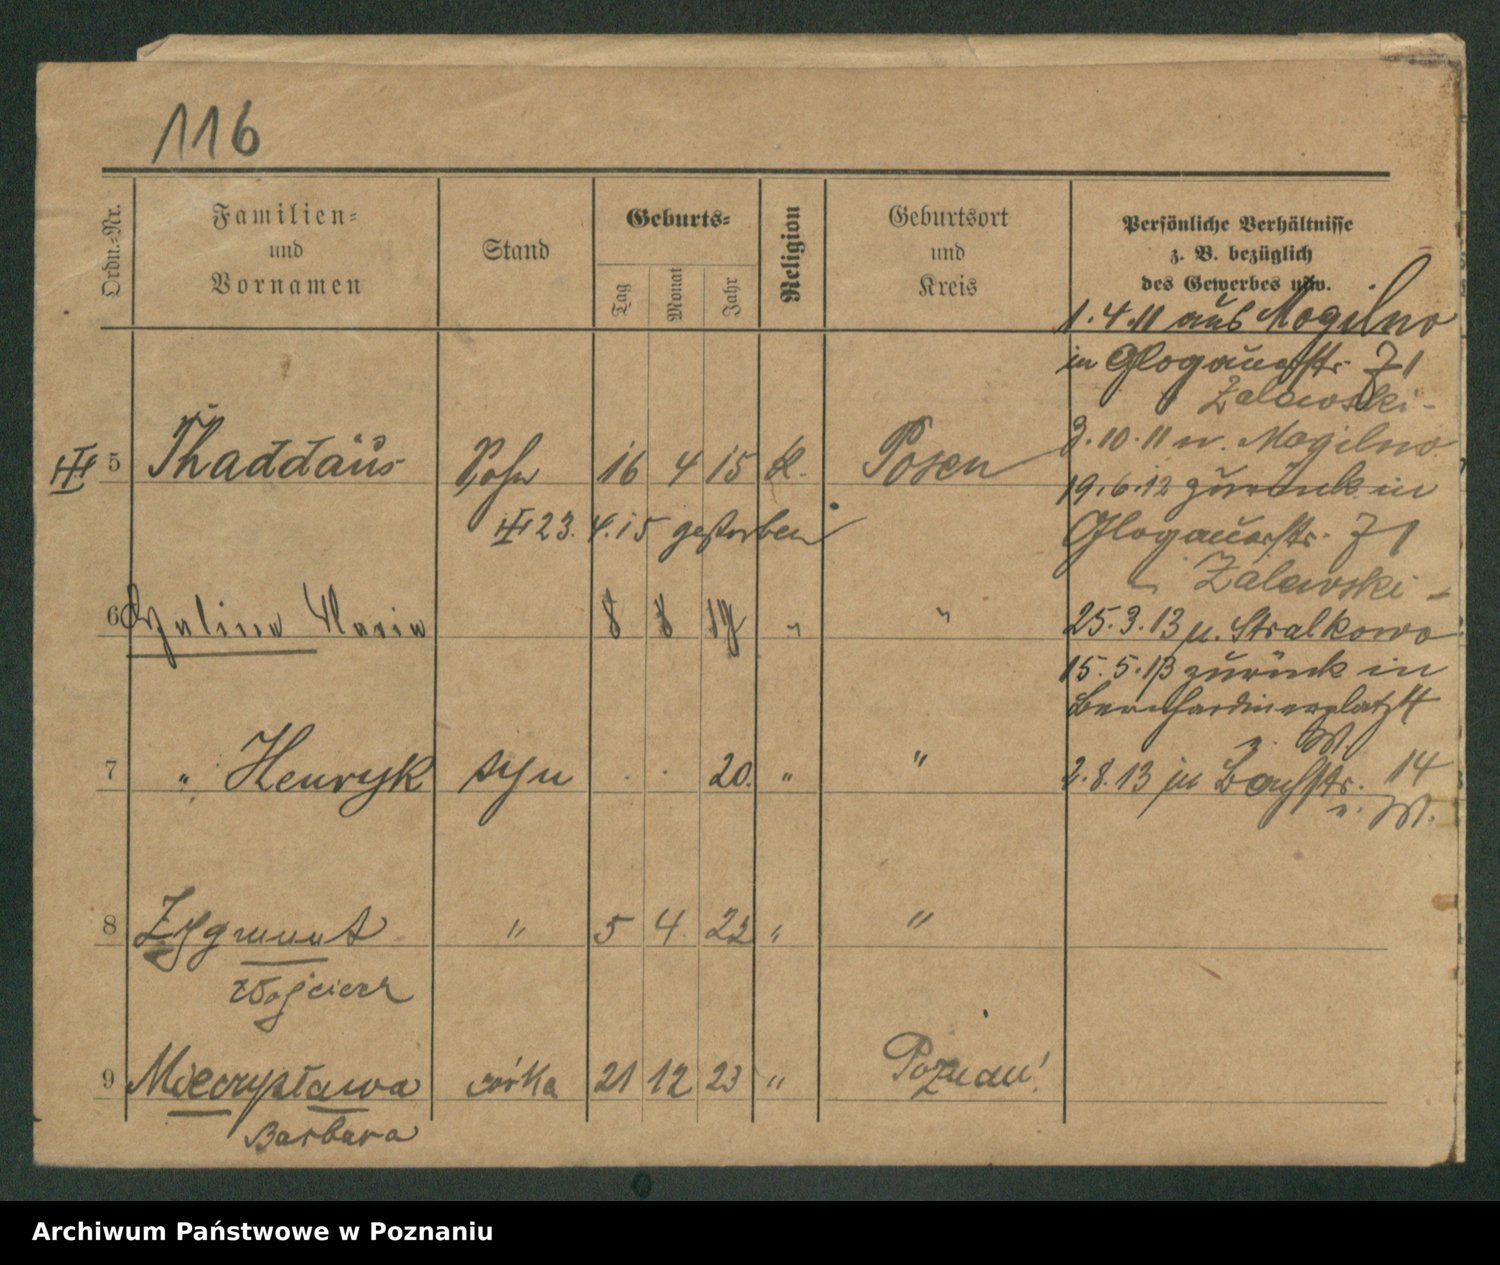 116
Ordn.-Nr.
Familien-
und
Vornamen
Stand
Geburts-
Tag
Monat
Jahr
Religion
Geburtsort
und
Kreis
Persönliche Verhältnisse
z. B. bezüglich
des Gewerbes usw.
1.4.11 aus Mogilno
in Glogauerstr. 71
Zalewski -
2.10.11 n. Mogilno
19.6.12 zurück in
Glogauerstr. 71
Zalewski -
25.3.13 n. Stralkowo
15.5.13 zurück in
Bernhardinerplatz 4
z. W.
2.8.13 in Bachstr. 14
z. W.
5 Thaddäus Sohn 16 4 15 k. Posen
23.4.15 gestorben
6 Halina Maria 8 8 19 " "
7 " Henryk syn 20. " "
8 Zygmunt " 5 4 22 " "
Wojciech
9 Mieczysława córka 21 12 23 " Poznań!
Barbara
Archiwum Państwowe w Poznaniu